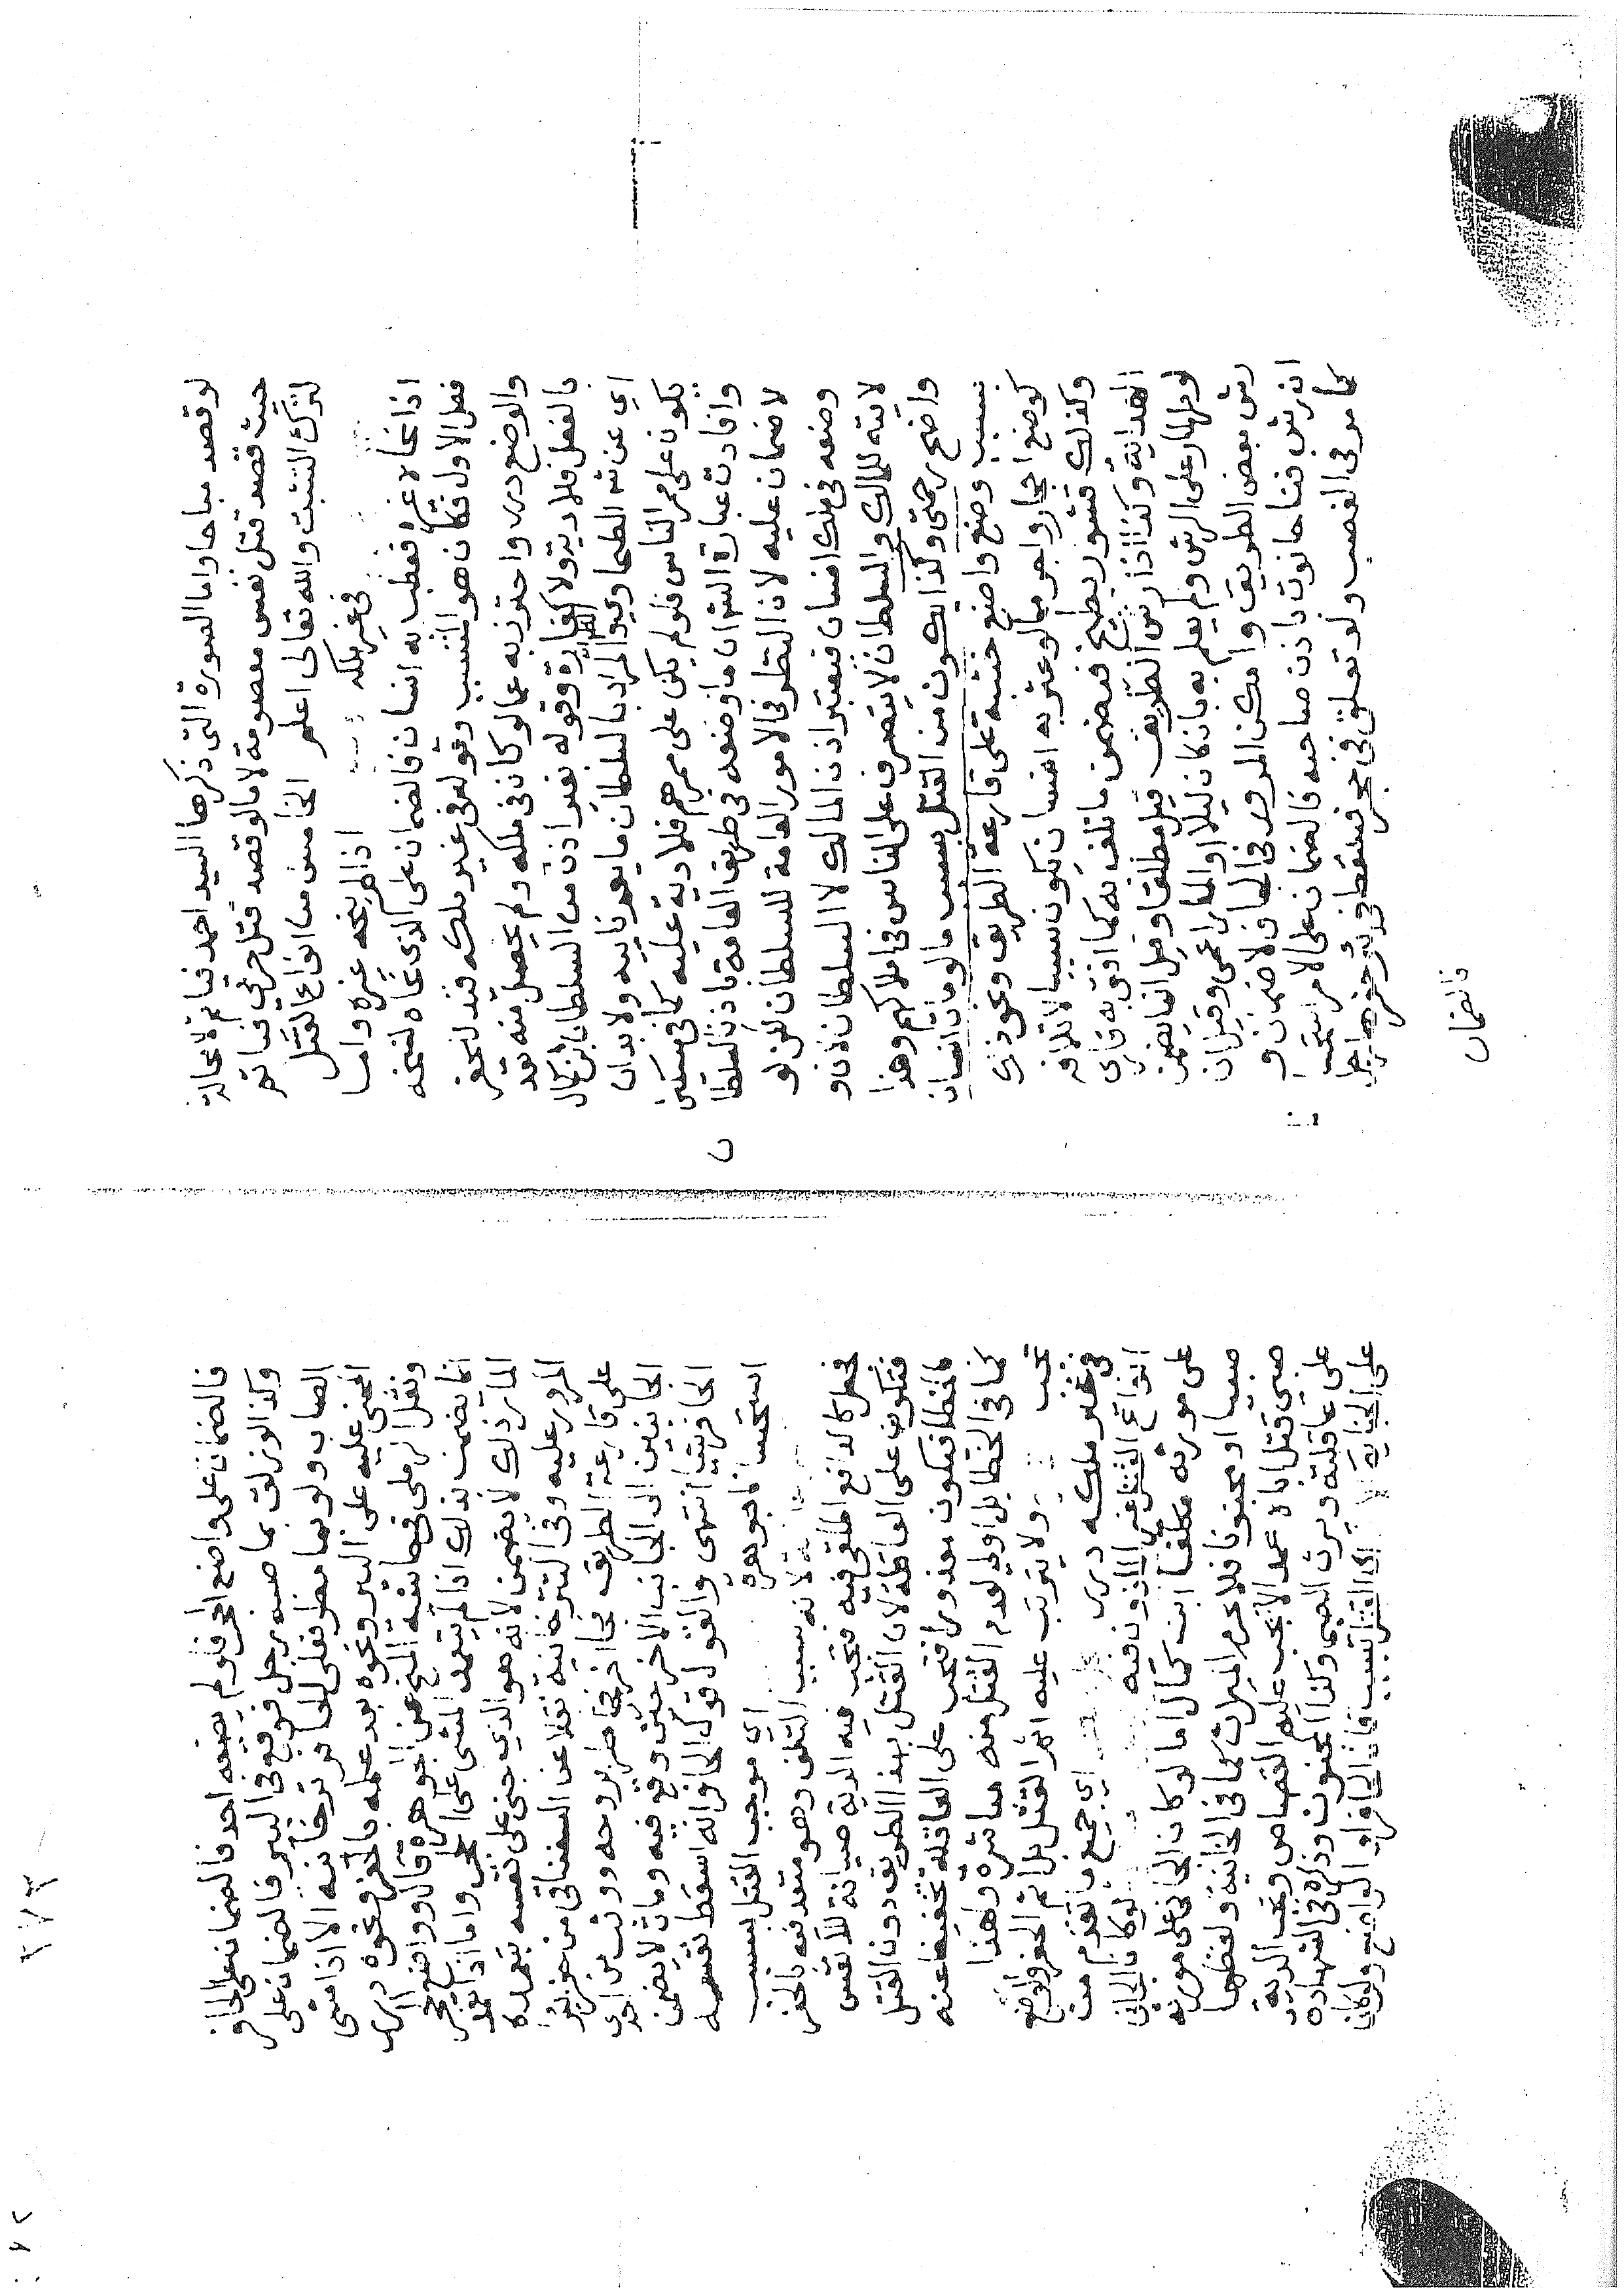 لو قصد مباحا واما الصورة التى ذكرها السيد احمد فياثم لا محالة
حيث قصد قتل نفس معصومة لا ما لو قصد قتل حربي فياثم
لترك التثبت والله تعالى اعلم الخامس من انواع القتل
فى غير ملكه اذا لم ينحه غيره واما
اذا نحا لا غيره فعطب به انسان فالضمان على الذي نحاه لنسخه
فعل الاول فكان هو المتسبب وقوله فى غير ملكه قيد للحفر
والوضع درر واحترز به عما لو كان فى ملكه ولم يحصل منه تعد
بالفعل فلا دية ولا كفارة وقوله بغير اذن من السلطان ابن كمال
اي عن شه الطحاوي والمراد بالسلطان ما يعم نايبه ولا بد ان
يكون على ممر الناس فلو لم يكن على ممرهم فلا دية عليه كما فى مسكين
وافادت عبارة الشه ان ما وضعه فى طريق العامة باذن السلطان
لا ضمان عليه لان النظر فى الامور العامة للسلطان لكن لو
وضعه فى ملك انسان فيعتبر اذن المالك لا السلطان لان و
لايته للمالك والسلطان لا يتصرف على الناس فى املاكهم وهذا
واضح رحمتى وكذا يكون من القتل بسبب ما لو مات انسان
بسبب وضع واضع خشبة على قارعة الطريق ونحو ذلك
كوضع احجار واجر مما لو عثر به انسان يكون سببا لاتلافه
وكذلك قشور بطيخ فيضمن ما تلف به كما افتى به قارئ
الهداية وكذا اذا رش الطريق قيل مطلقا وقيل انما يضمن
لو لهار على الرش ولم يعلم به بان كان ليلا او المار اعمى وقيل ان
رش بعض الطريق وامكن المرور فى الجاف لا ضمان و
ان رش فنا حانوت باذن صاحبه فالضمان على الامر استحسانا
كما مر فى الغصب ولو تعلق فى حجر فسقط فى بئر حفرها رجل
فالضمان
فالضمان على واضع الحجر فلو لم يضعه احد فالضمان على الحافر
وكذا لو زلق بما صبه رجل فوقع فى البير فالضمان على
الصاب ولو بماء مطر فعلى الحافر ترخانيه الا اذا مشى
المجنى عليه على البير ونحوه بعد علمه بالحفر ونحوه درر
ونقل الرملى فى حاشية المنح عن الجوهرة قال وواضع الحجر
انما يضمن بذلك اذا لم يتعمد المشى على الحجر واما اذا تعمد
المار ذلك لا يضمن لانه هو الذي جنى على نفسه بتعمده
المرور عليه وفى التترخانية نقلا عن السغناقى من حفر بئرا
على قارعة الطريق فجا اخر فخاطر بروحه ووثب من احدى
الجانبين الى الجانب الاخر حتى وقع فيه ومات لا يضمن
الحافر شيا انتهى والقول قول الحافر انه اسقط نفسه
استحسانا جوهرة اي موجب القتل بسبب
لانه سبب التلف وهو متعد فيه بالحفر
فجعل كالدافع الملقى فيه فتجب فيه الدية صيانة للانفس
فتكون على العاقلة لان القتل بهذا الطريق دون القتل
بالخطا فيكون معذورا فتجب على العاقلة تخفيفا عنه
كما فى الخطا بل اولى لعدم القتل منه مباشرة ولهذا
تجب ولا يترتب عليه اثم القتل بل اثم الحفر والوضع
فى غير ملكه درر اي جميع ما تقدم من
انواع القتل غير الماذون فيه لو كان الجانى
على مورثه مكلفا ابن كمال اما لو كان الجانى على مورثه
صبيا او مجنونا فلا حرم الميراث كما فى الخانية ولفظها
صبى قتل اباه عمدا لا يجب عليه القصاص وتجب الدية
على عاقلته ويرث الصبى وكذا المجنون وذكره فى الشهادة
على الجناية اي القتل تسبب فان الحافر او الواضع ولو كان